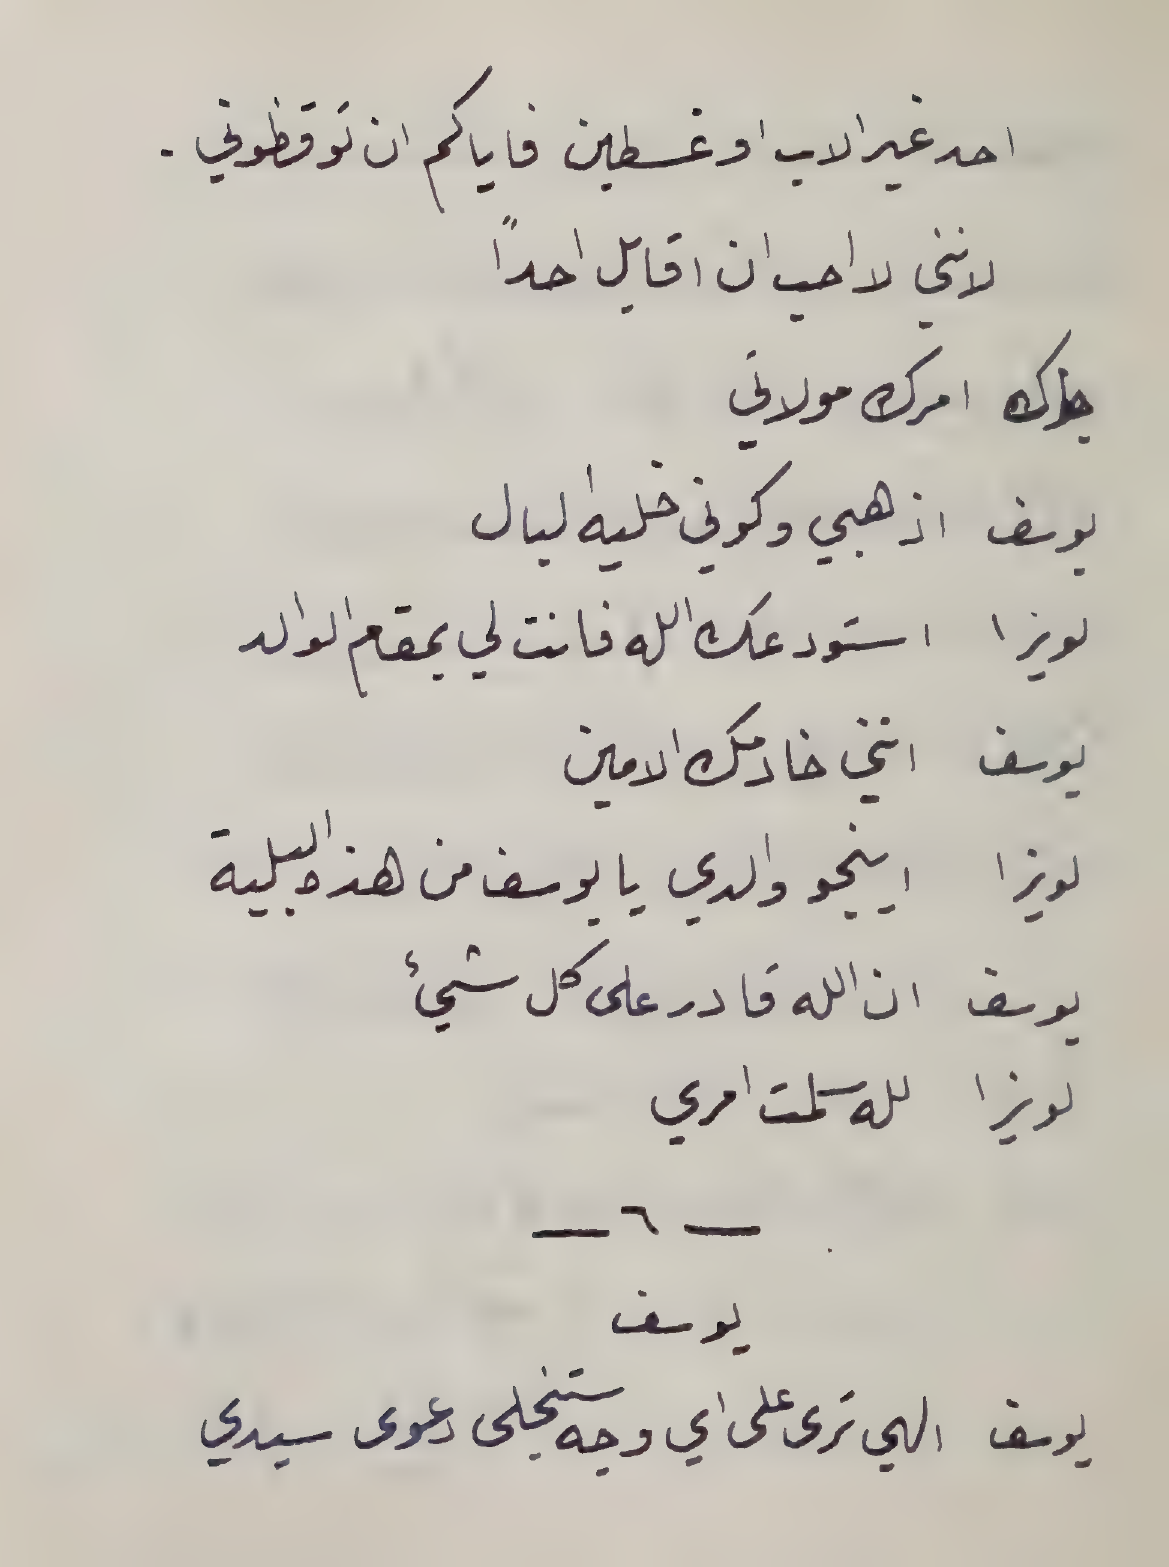 احد غير الاب اوغسطين فاياكم ان توقظوني .
لانني لا احب ان اقابل احداً
جاك امرك مولاتي
يوسف اذهبي وكوني خلية البال
لويزا استودعك الله فانت لي بمقام الوالد
يوسف انني خادمك الامين
لويزا اينجو والدي يا يوسف من هذه البلية
يوسف ان الله قادر على كل شيئ
لويزا لله سلمت امري
— ٦ —
يوسف
يوسف الهي ترى على اي وجه ستنجلى دعوى سيدي